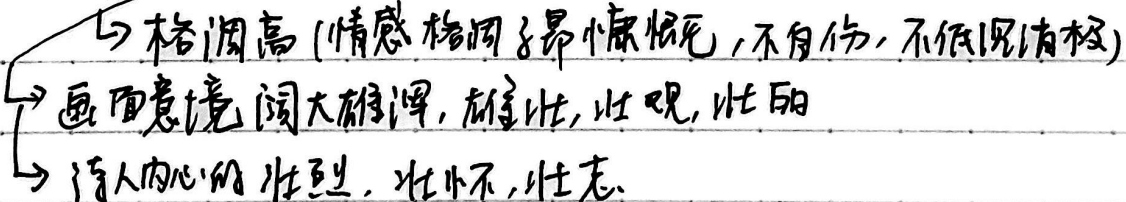 ↳格调高(情感格调高昂慷慨,不自伤,不低沉消极)
→画面意境阔大雄浑,雄壮,壮观,壮阔
→诗人内心的壮烈,壮怀,壮志、